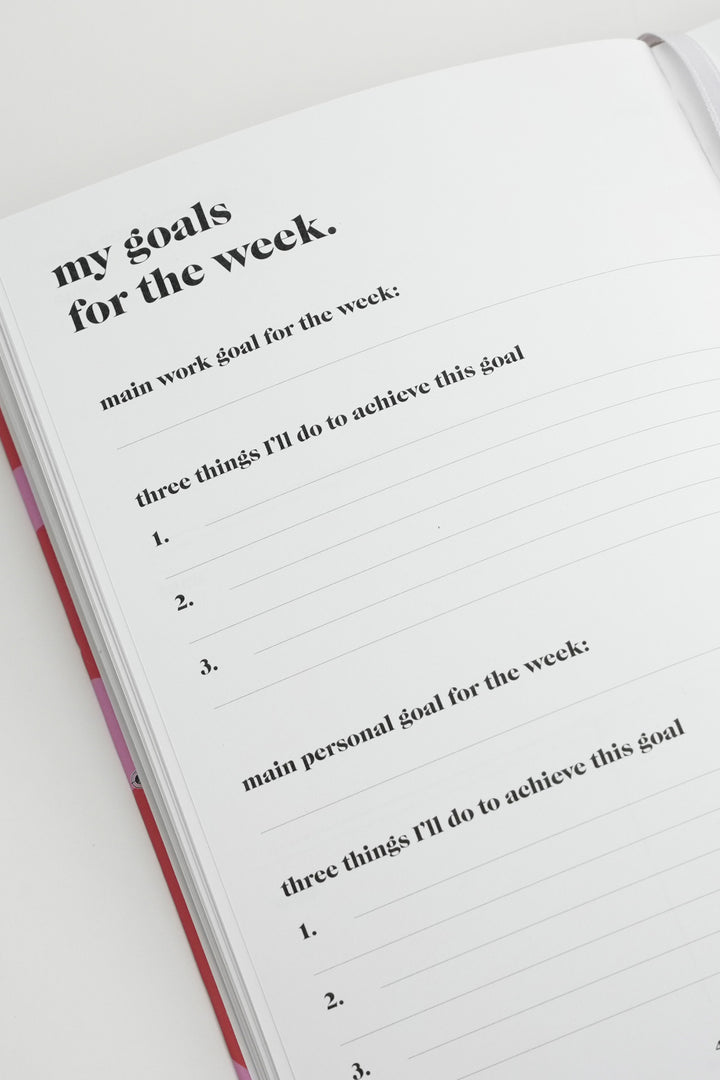 my goals
for the week.
main work goal for the week:
three things I'll do to achieve this goal
1.
2.
3.
main personal goal for the week:
three things I'll do to achieve this goal
1.
2.
3.